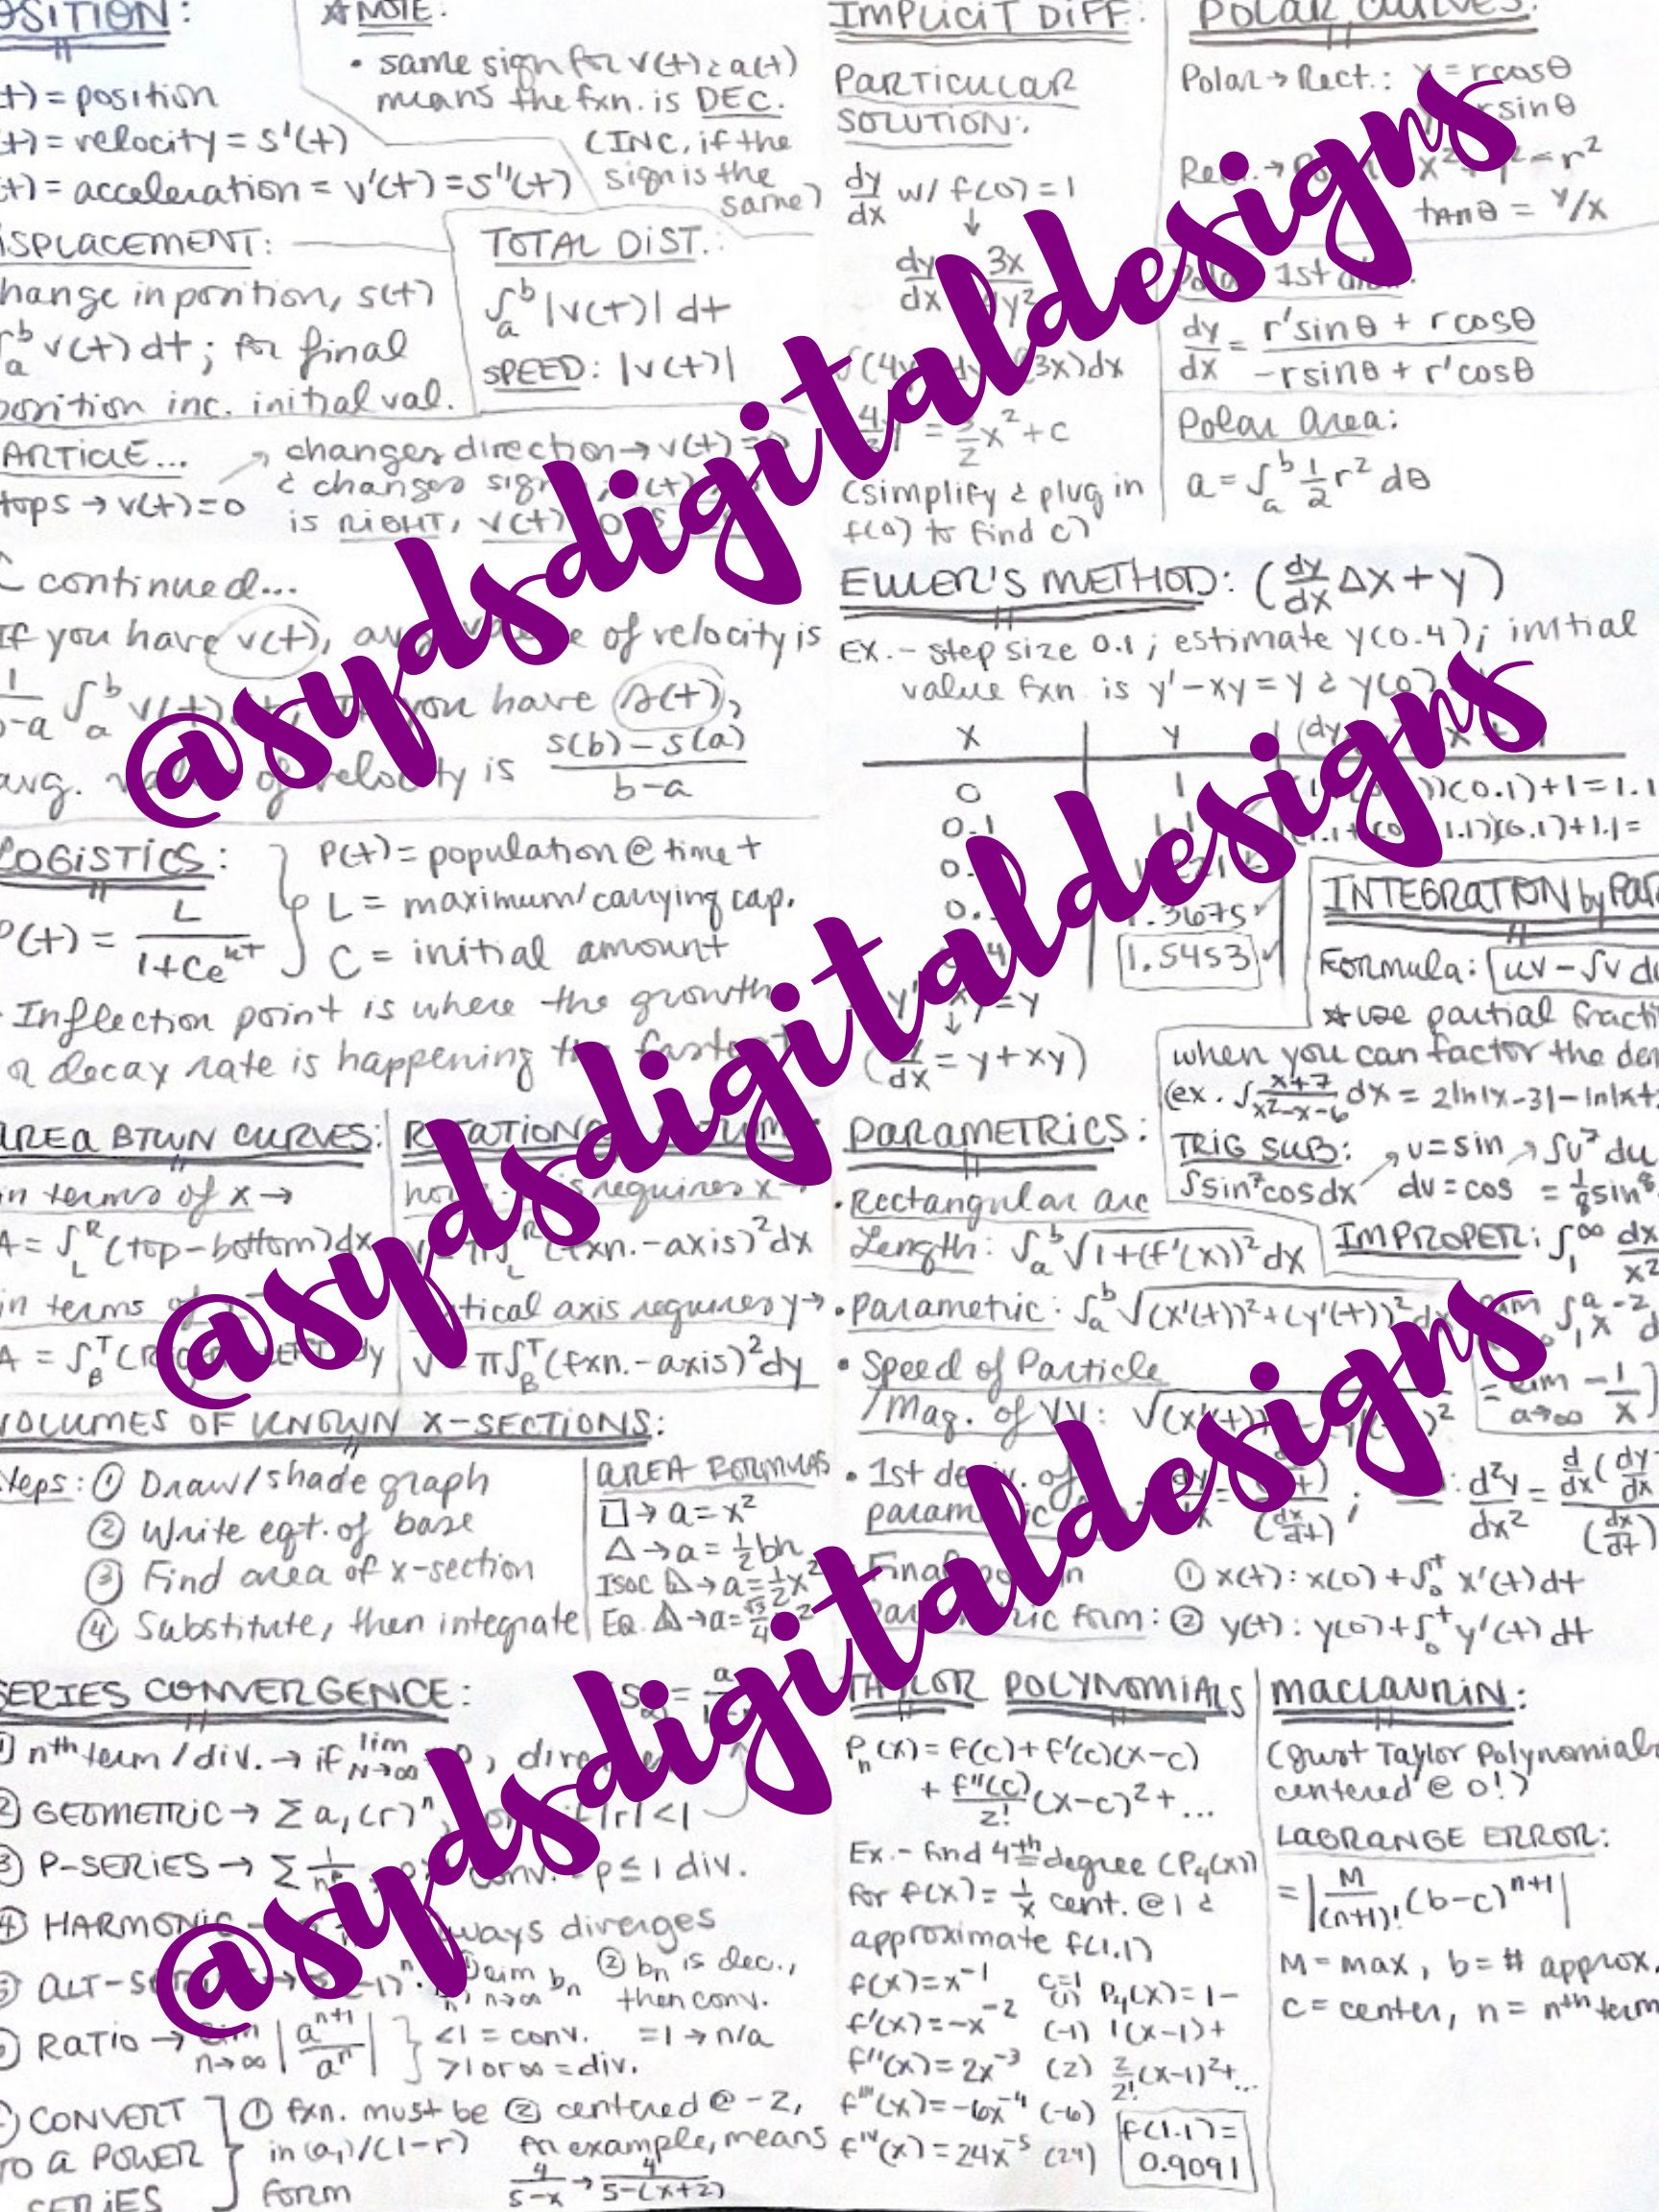 OSITION:
t) = position
t) = velocity = s'(t)
t) = acceleration = v'(t) = s''(t)
☆ NOTE:
• same sign for v(t) & a(t)
means the fxn. is DEC.
(INC, if the
sign is the
same)
ISPLACEMENT:
hange in position, s(t)
∫ₐᵇ v(t) dt; for final
position inc. initial val.
TOTAL DIST.:
∫ₐᵇ |v(t)| dt
SPEED: |v(t)|
ARTICLE...
tops → v(t)=0
→ changes direction → v(t)=0
& changes sign
is RIGHT, v(t)
continued...
If you have v(t), avg value of velocity is
1/b-a ∫ₐᵇ v(t) you have s(t),
avg. value of velocity is s(b)-s(a)/b-a
LOGISTICS:
P(t) = L/1+Ce^kt
P(t) = population @ time t
L = maximum/carrying cap.
C = initial amount
Inflection point is where the growth
or decay rate is happening the fastest
AREA BTWN CURVES:
in terms of x →
A = ∫_L^R (top-bottom)dx
in terms of
A = ∫_B^T dy
ROTATION
requires x →
(fxn.-axis)²dx
vertical axis requires y →
V = π∫_B^T (fxn.-axis)²dy
VOLUMES OF KNOWN X-SECTIONS:
teps: ① Draw/shade graph
② Write eqt. of base
③ Find area of x-section
④ Substitute, then integrate
AREA FORMULAS
□ → a = x²
△ → a = ½bh
ISOC △ → a = ½x²
EQ. △ → a = √3/4
SERIES CONVERGENCE:
nth term/div. → if lim n→∞ , diverges
GEOMETRIC → Σ a₁(r)ⁿ, if |r|<1
P-SERIES → Σ 1/nᵖ conv. p ≤ 1 div.
HARMONIC always diverges
ALT-SERIES ① lim n→∞ bn ② bn is dec.,
then conv.
RATIO → lim n→∞ |aⁿ⁺¹/aⁿ| } <1 = conv. =1 → n/a
>1 or ∞ = div.
CONVERT
TO A POWER
SERIES
① fxn. must be
in (a₁)/(1-r)
form
② centered @ -2,
for example, means
4/5-x → 4/5-(x+2)
IMPLICIT DIFF.:
PARTICULAR
SOLUTION:
dy/dx w/ f(0)=1
↓
dy/dx 3x/4y²
∫(4y (3x)dx
= 3/2 x² + c
(simplify & plug in
f(0) to find c)
POLAR CURVES:
Polar → Rect.: = rcosθ
rsinθ
Rect. → x² = r²
tanθ = y/x
Polar 1st deriv.
dy/dx = r'sinθ + rcosθ / -rsinθ + r'cosθ
Polar Area:
a = ∫ₐᵇ ½ r² dθ
EULER'S METHOD: (dy/dx Δx + y)
EX. - step size 0.1; estimate y(0.4); initial
value fxn is y'-xy=y & y(0)
x y
0 1 )(0.1)+1=1.1
0.1 1.1 1.1)(0.1)+1.1=
1.3675
1.5453
(dy/dx = y+xy)
INTEGRATION by PAR
Formula: uv - ∫v du
☆ use partial fracti
when you can factor the den
(ex. ∫ x+7/x²-x-6 dx = 2ln|x-3| - ln|x+2
TRIG SUB: u=sin → ∫u⁷ du
∫sin⁷cosdx du = cos = ⅛sin⁸
IMPROPER: ∫₁^∞ dx/x²
lim ∫₁ᵃ x⁻²
= lim a→∞ -1/x]
PARAMETRICS:
• Rectangular arc
Length: ∫ₐᵇ √1+(f'(x))² dx
• Parametric: ∫ₐᵇ √(x'(t))²+(y'(t))²
• Speed of Particle
/Mag. of VV: √(x'(t))
• 1st deriv. of
parametric (dx/dt) ; d²y/dx² = d/dx(dy/dx)/(dx/dt)
• Final
parametric form:
① x(t): x(0) + ∫₀ᵗ x'(t)dt
② y(t): y(0) + ∫₀ᵗ y'(t)dt
TAYLOR POLYNOMIALS
Pn(x) = f(c)+f'(c)(x-c)
+ f''(c)/2! (x-c)² + ...
Ex. - find 4th degree (P₄(x))
for f(x) = 1/x cent. @ 1 &
approximate f(1.1)
f(x)=x⁻¹ c=1 (1) P₄(x)=1-
f'(x)=-x⁻² (-1) 1(x-1)+
f''(x)=2x⁻³ (2) 2/2!(x-1)²+...
f'''(x)=-6x⁻⁴ (-6)
f⁗(x)=24x⁻⁵ (24)
f(1.1)=
0.9091
MACLAURIN:
(Just Taylor Polynomials
centered @ 0!)
LAGRANGE ERROR:
= |M/(n+1)! (b-c)ⁿ⁺¹|
M = max, b = # approx.
c = center, n = nth term
@sydsdigitaldesigns
@sydsdigitaldesigns
@sydsdigitaldesigns
@sydsdigitaldesigns